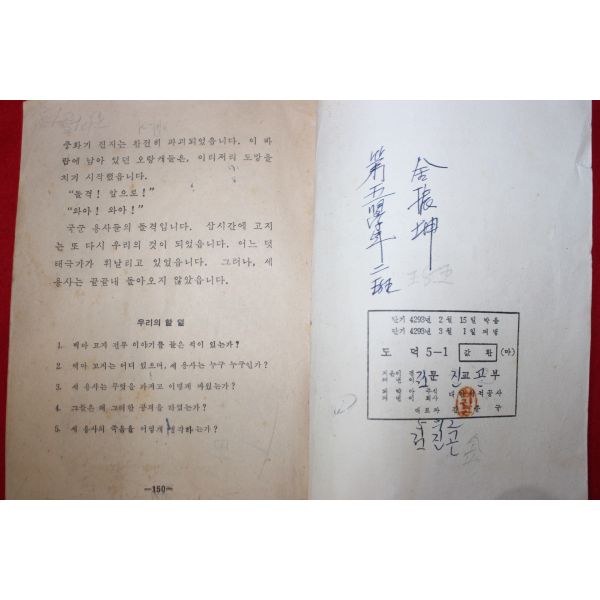 중화기 진지는 완전히 파괴되었읍니다. 이 바
람에 남아 있던 오랑캐들은, 이리저리 도망을
치기 시작했읍니다.
“돌격! 앞으로!”
“와아! 와아!”
국군 용사들의 돌격입니다. 삽시간에 고지
는 또 다시 우리의 것이 되었읍니다. 어느 덧
태극기가 휘날리고 있었읍니다. 그러나, 세
용사는 끝끝내 돌아오지 않았읍니다.
우리의 할 일
1. 백마 고지 전투 이야기를 들은 적이 있는가?
2. 백마 고지는 어디 있으며, 세 용사는 누구 누구인가?
3. 세 용사는 무엇을 가지고 이렇게 싸웠는가?
4. 그들은 왜 그러한 공격을 하였는가?
5. 세 용사의 죽음을 어떻게 생각하는가?
—150—
金振坤
第五學年二班
단기 4293년 2월 15일 박음
단기 4293년 3월 1일 펴냄
도덕 5-1 값 환 (마)
대표자
김진곤